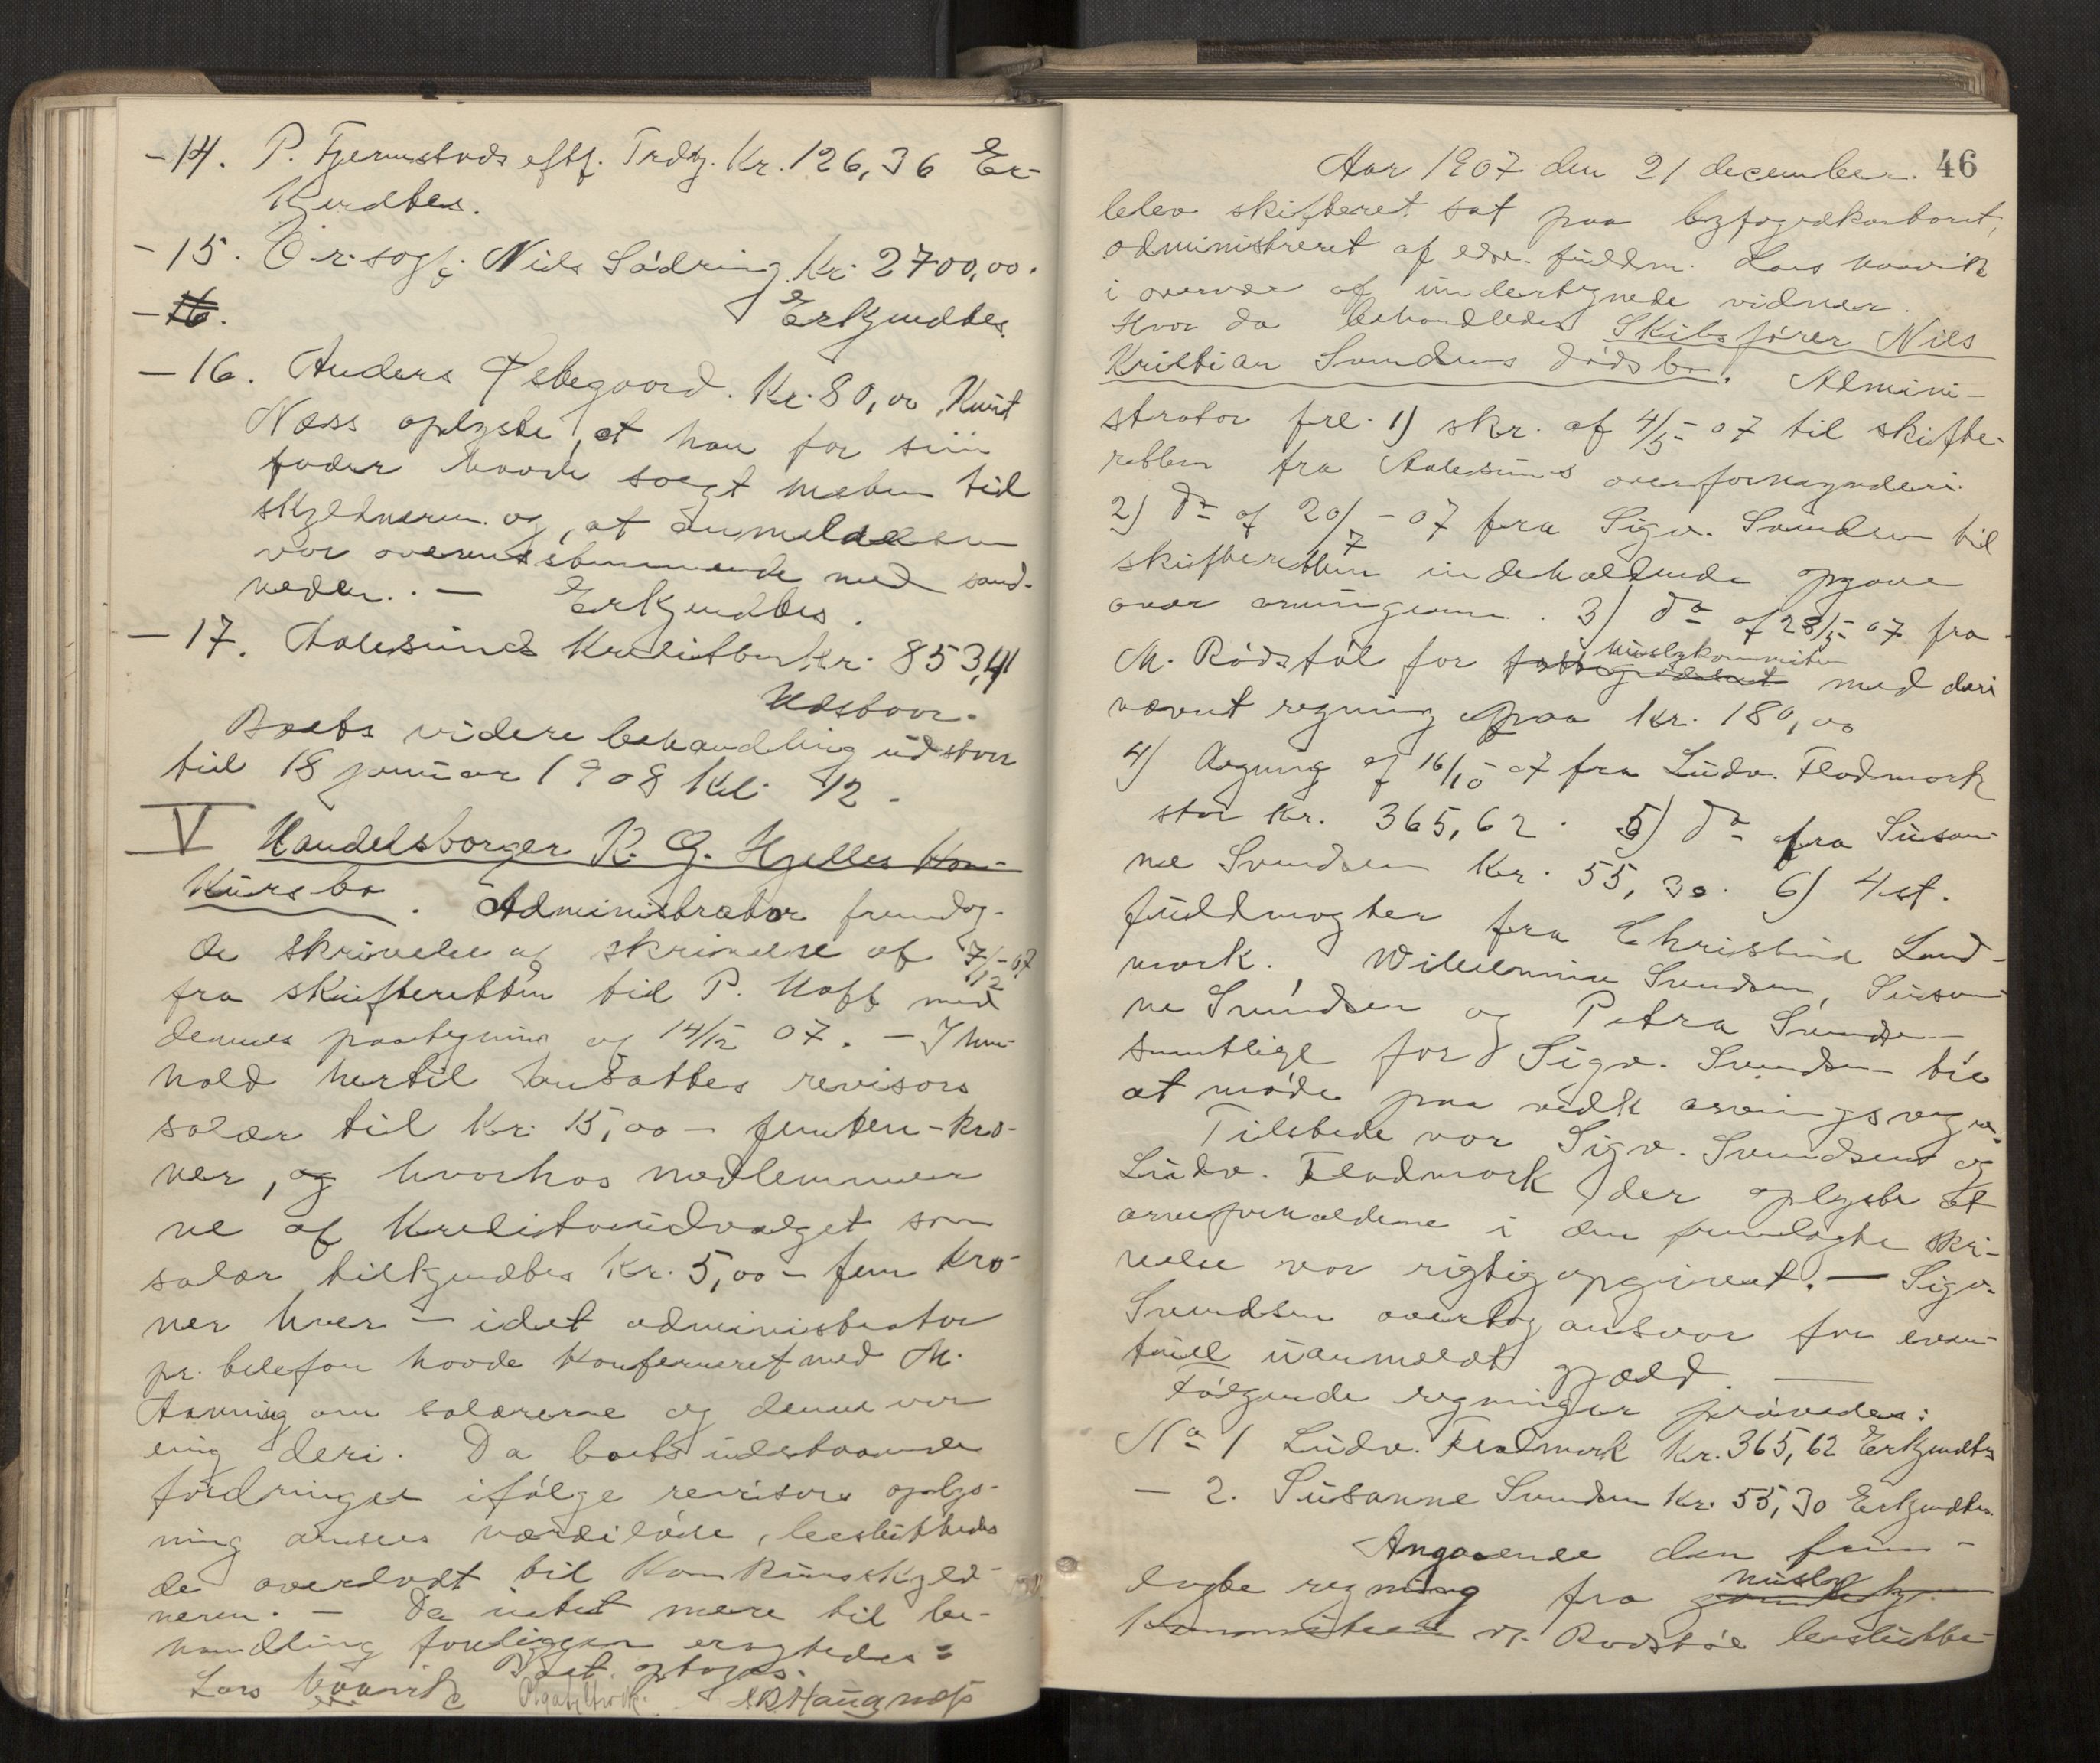 - 14. P. Fjermstads eftf. Trdhj. Kr. 126,36 Er-
kjendtes.
- 15. O.r.sagf. Niels Södring Kr. 2700,00.
- 16. Erkjendtes
- 16. Anders Østegaard. Kr. 80,00 Knut
Næss oplyste, at han for sin
fader havde solgt melken til
skyldneren og, at anmeldelsen
var overensstemmende med sand-
heden. — Erkjendtes.
- 17. Aalesunds Kreditbank Kr. 853,41
Udstaar.
Boets videre behandling udstaar
til 18 januar 1908 kl. 12.
V Handelsborger K. G. Hjelles Kon-
kursbo. Administrator fremlag-
de skrivelse af skrivelse af 7/12-07
fra skifteretten til P. Hoff med
dennes paategning af 14/12 07. — I hen-
hold hertil ansattes revisors
salær til Kr. 15,00 - femten - kro-
ner, og hvorhos medlemmer
ne af Kreditorudvalget som
salær tilkjendtes Kr. 5,00 - fem kro-
ner hver - idet administrator
pr. telefon havde konfereret med M.
Aarning om salærerne og denne var
enig deri. Da boets udestaaende
fordringer ifølge revisors oplys-
ning ansees værdiløse, besluttedes
de overladt til Konkursskyld-
neren. — Da intet mere til be-
handling foreligger eragtedes:
Boet optages.
Lars Vaavik A.B. Haugnæss
46
Aar 1907 den 21 december.
blev skifteret sat paa byfogedkontoret,
administreret af edsv. fuldm. Lars Vaavik
i overvær af undertegnede vidner.
Hvor da behandledes Skibsfører Nils
Kristian Svendsens dødsbo. Admini-
strator frl. 1) skr. af 4/5-07 til skifte-
retten fra Aalesunds overformynderi.
2) do af 20/7-07 fra Sigv. Svendsen til
skifteretten indeholdende opgave
over arvingerne. 3) do af 28/5-07 fra
M. Rödstöl for fattigvæsenet huslykommiteen med deri
nævnt regning paa Kr. 180,00
4) Regning af 16/10-07 fra Ludv. Flodmark
stor Kr. 365,62. 5) do fra Susan-
ne Svendsen Kr. 55,30. 6) 4 st.
fuldmagter fra Christine Land-
mark. Wilhelmine Svendsen, Susan-
ne Svendsen og Petra Svendsen
samtlige for Sigv. Svendsen til
at møde paa vedk arvings vegne.
Tilstede var Sigv. Svendsen og
Ludv. Flodmark der oplyste at
arveforholdene i den fremlagte skri-
velse var rigtig opgivet. — Sigv.
Svendsen overtog ansvar for even-
tuel uanmeldt gjæld. —
Følgende regninger prøvedes:
No 1 Ludv. Flodmark Kr. 365,62 Erkjendtes
— 2. Susanne Svendsen Kr. 55,30 Erkjendtes.
Angaaende den frem-
lagte regning fra husly
kommiteen v. Rödstöl beslutte-